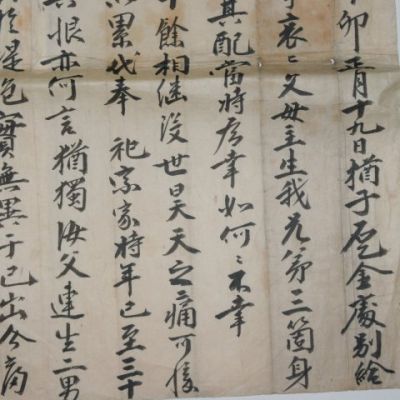 卯正月十九日猶子金處別給
哀〻父母主生我兄弟三箇身
其配當時居幸如何〻不幸
餘相継没世曰夭夭之痛可
累代奉祀宗家時年已至三十
恨亦何言猶獨汝父連生二男
於是也實無異于己出今